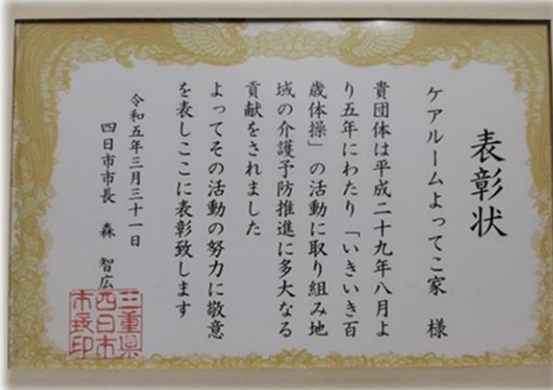 表彰状
ケアルームよってこ家 様
貴団体は平成二十九年八月よ
り五年にわたり「いきいき百
歳体操」の活動に取り組み地
域の介護予防推進に多大なる
貢献をされました
よってその活動の努力に敬意
を表しここに表彰致します
令和五年三月三十一日
四日市市長 森 智広
三重県
四日市
市長印